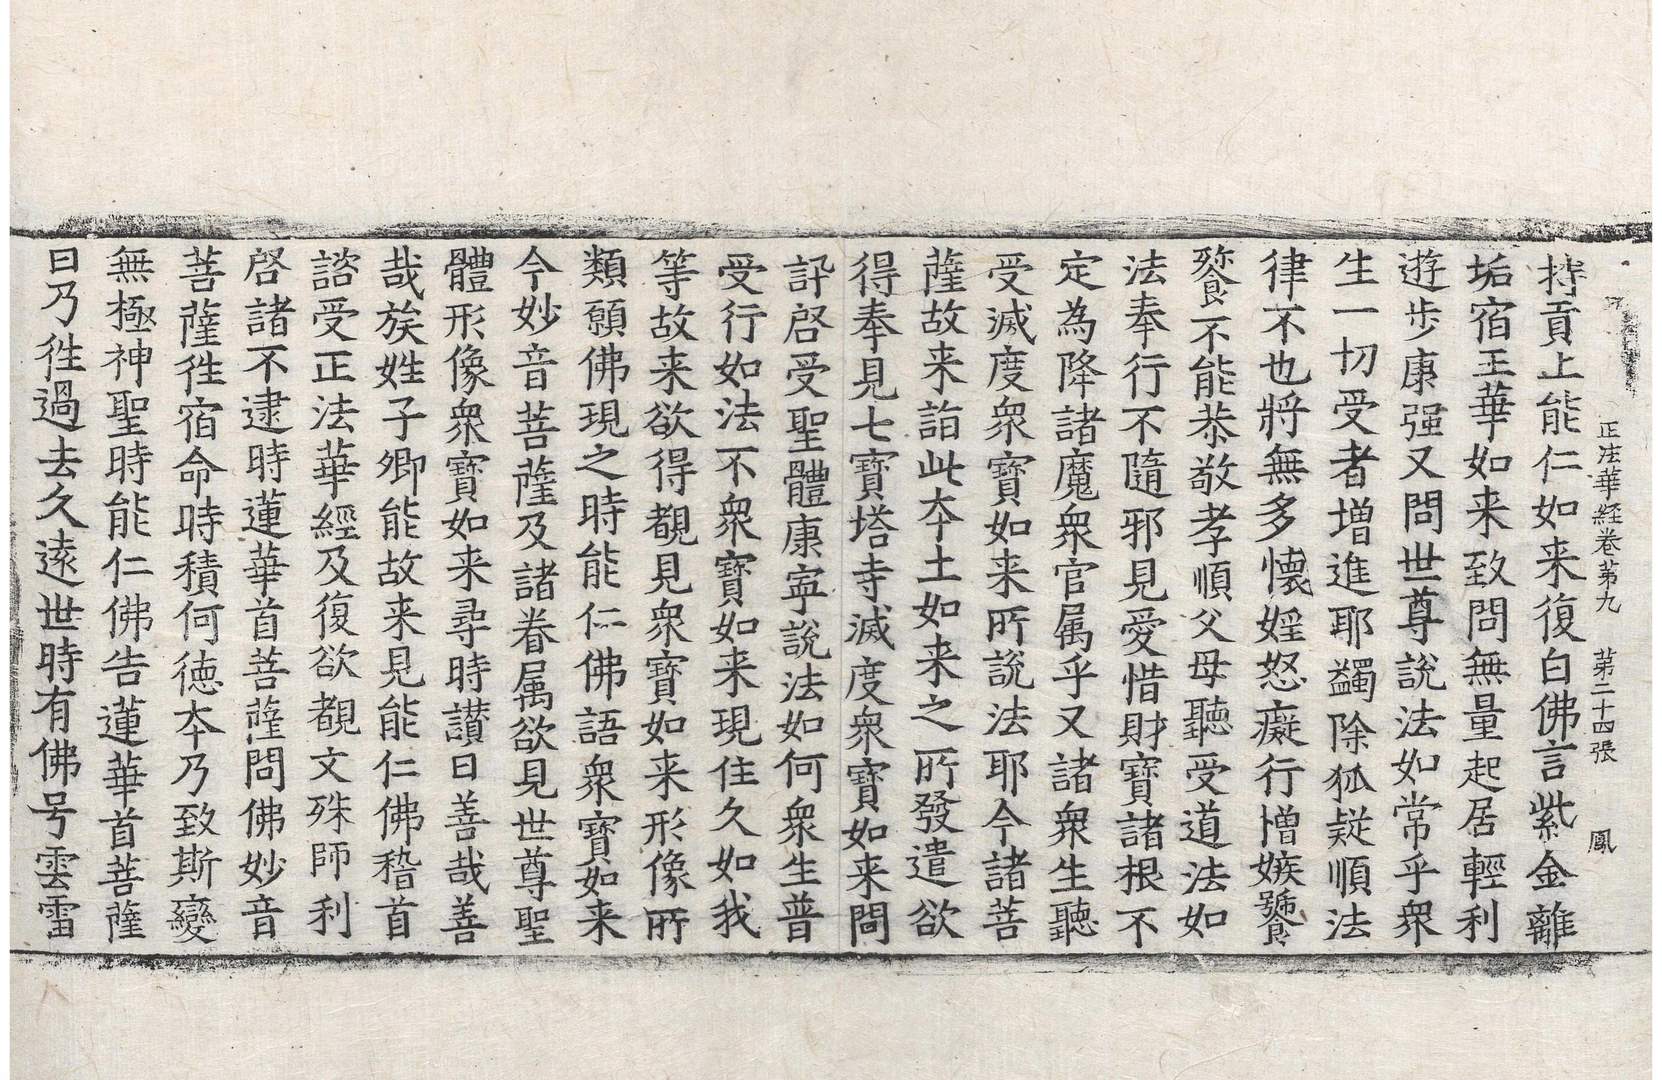 正法華経卷苐九　苐二十四張　鳳
持貢上能仁如来復白佛言紫金離
垢宿王華如来致問無量起居輕利
遊步康强又問世尊說法如常乎衆
生一切受者增進耶蠲除狐疑順法
律不也將無多懷婬怒癡行憎嫉饕
餮不能恭敬孝順父母聽受道法如
法奉行不隨邪見愛惜財寶諸根不
定為降諸魔衆官属乎又諸衆生聽
受滅度衆寶如来所說法耶今諸菩
薩故来詣此本土如来之所發遣欲
得奉見七寶塔寺滅度衆寶如来問
訊啓受聖體康寧說法如何衆生普
受行如法不衆寶如来現住久如我
等故来欲得覩見衆寶如来形像所
類願佛現之時能仁佛語衆寶如来
今妙音菩薩及諸眷属欲見世尊聖
體形像衆寶如来尋時讃曰善哉善
哉族姓子卿能故来見能仁佛稽首
諮受正法華經及復欲覩文殊師利
啓諸不逮時蓮華首菩薩問佛妙音
菩薩往宿命時積何徳本乃致斯變
無極神聖時能仁佛告蓮華首菩薩
曰乃往過去久遠世時有佛号雲雷